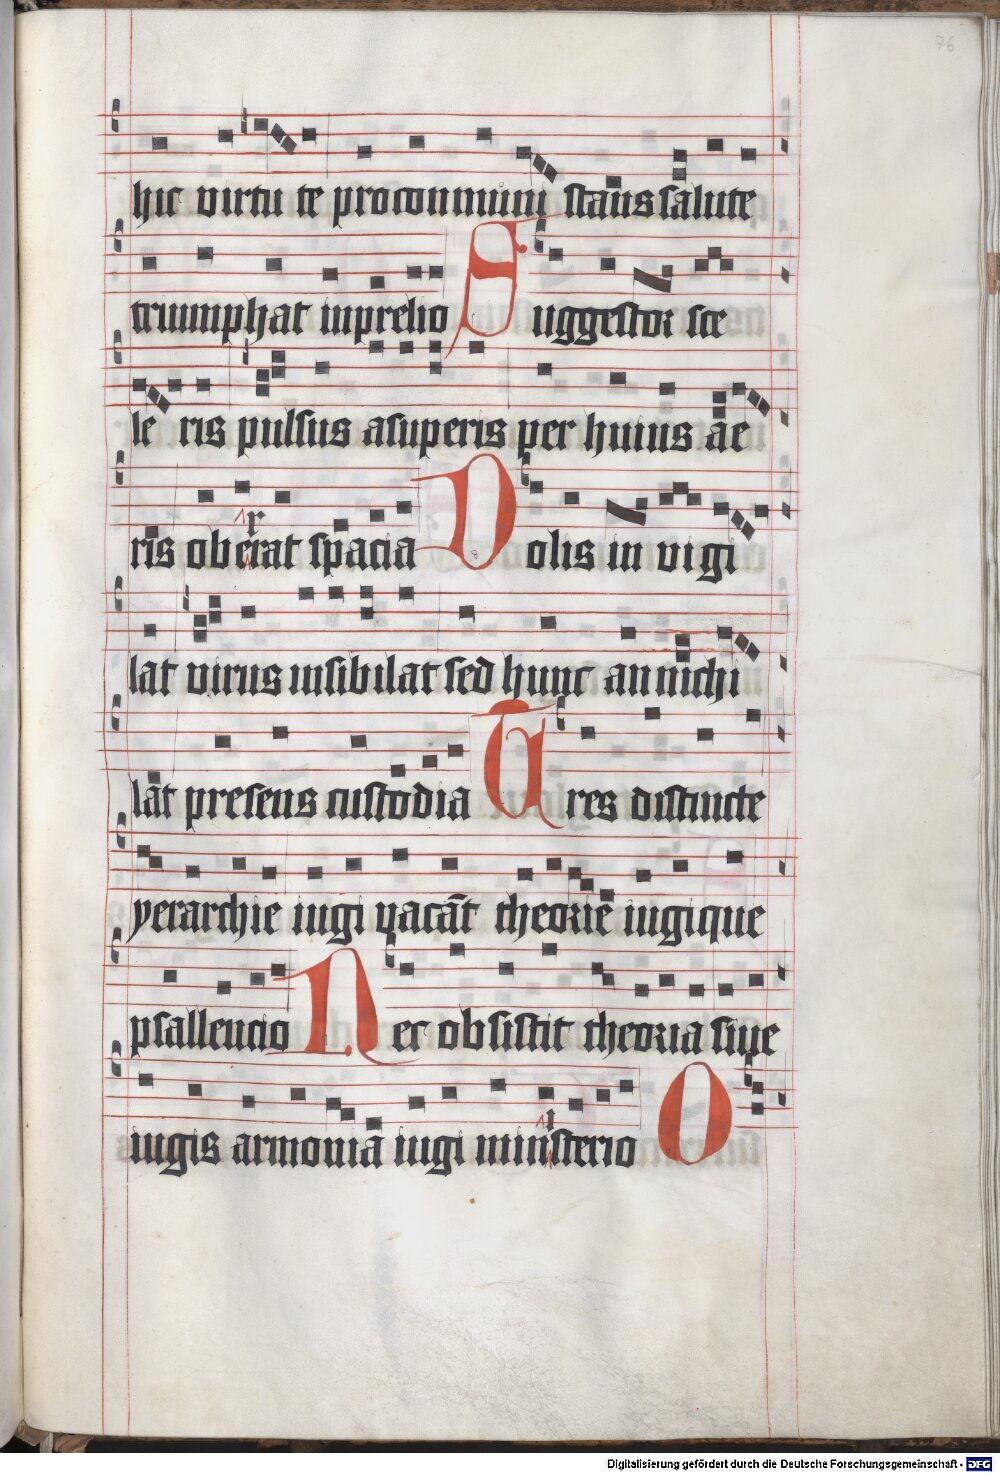 76
hic virtu te pro communi stans salute
triumphat in prelio Suggestor sce
le ris pulsus a superis per huius ae
ris oberrat spacia Dolis in vigi
lat virus in sibilat sed hunc an nichi
lat presens custodia Tres distincte
yerarchie iugi vacāt theorie iugique
psallencio Nec obsistit theoria siue
iugis armonia iugi ministerio O
Digitalisierung gefördert durch die Deutsche Forschungsgemeinschaft - DFG